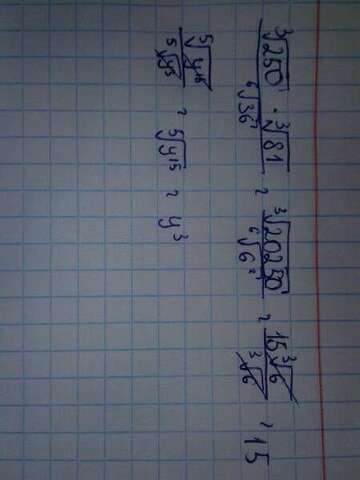 ∛250 · ∛81 / ⁶√36 = ∛20250 / ⁶√6² = 15∛6 / ∛6 = 15
⁵√y¹⁸ / ⁵√y³ = ⁵√y¹⁵ = y³